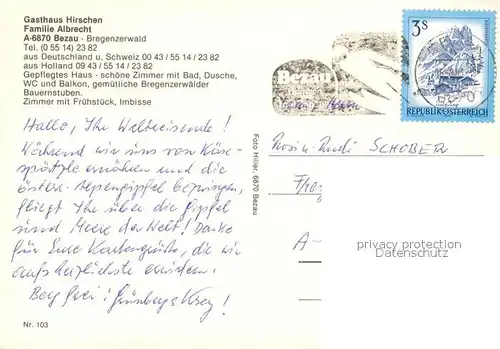 Gasthaus Hirschen
Familie Albrecht
A-6870 Bezau - Bregenzerwald
Tel. (0 55 14) 23 82
aus Deutschland u. Schweiz 00 43 / 55 14 / 23 82
aus Holland 09 43 / 55 14 / 23 82
Gepflegtes Haus - schöne Zimmer mit Bad, Dusche,
WC und Balkon, gemütliche Bregenzerwälder
Bauernstuben.
Zimmer mit Frühstück, Imbisse
Hallo, Ihr Weltreisende!
Während wir uns von Käse-
spätzle ernähren und die
österr. Alpengipfel bezwingen,
fliegt Ihr über die Gipfel
und Meere der Welt! Danke
für Eure Kartengrüße, die wir
aufs herzlichste erwidern.
Berg frei!
Nr. 103
Foto Hiller, 6870 Bezau
Bezau
3S
REPUBLIK ÖSTERREICH
SCHOBER
A-
privacy protection
Datenschutz